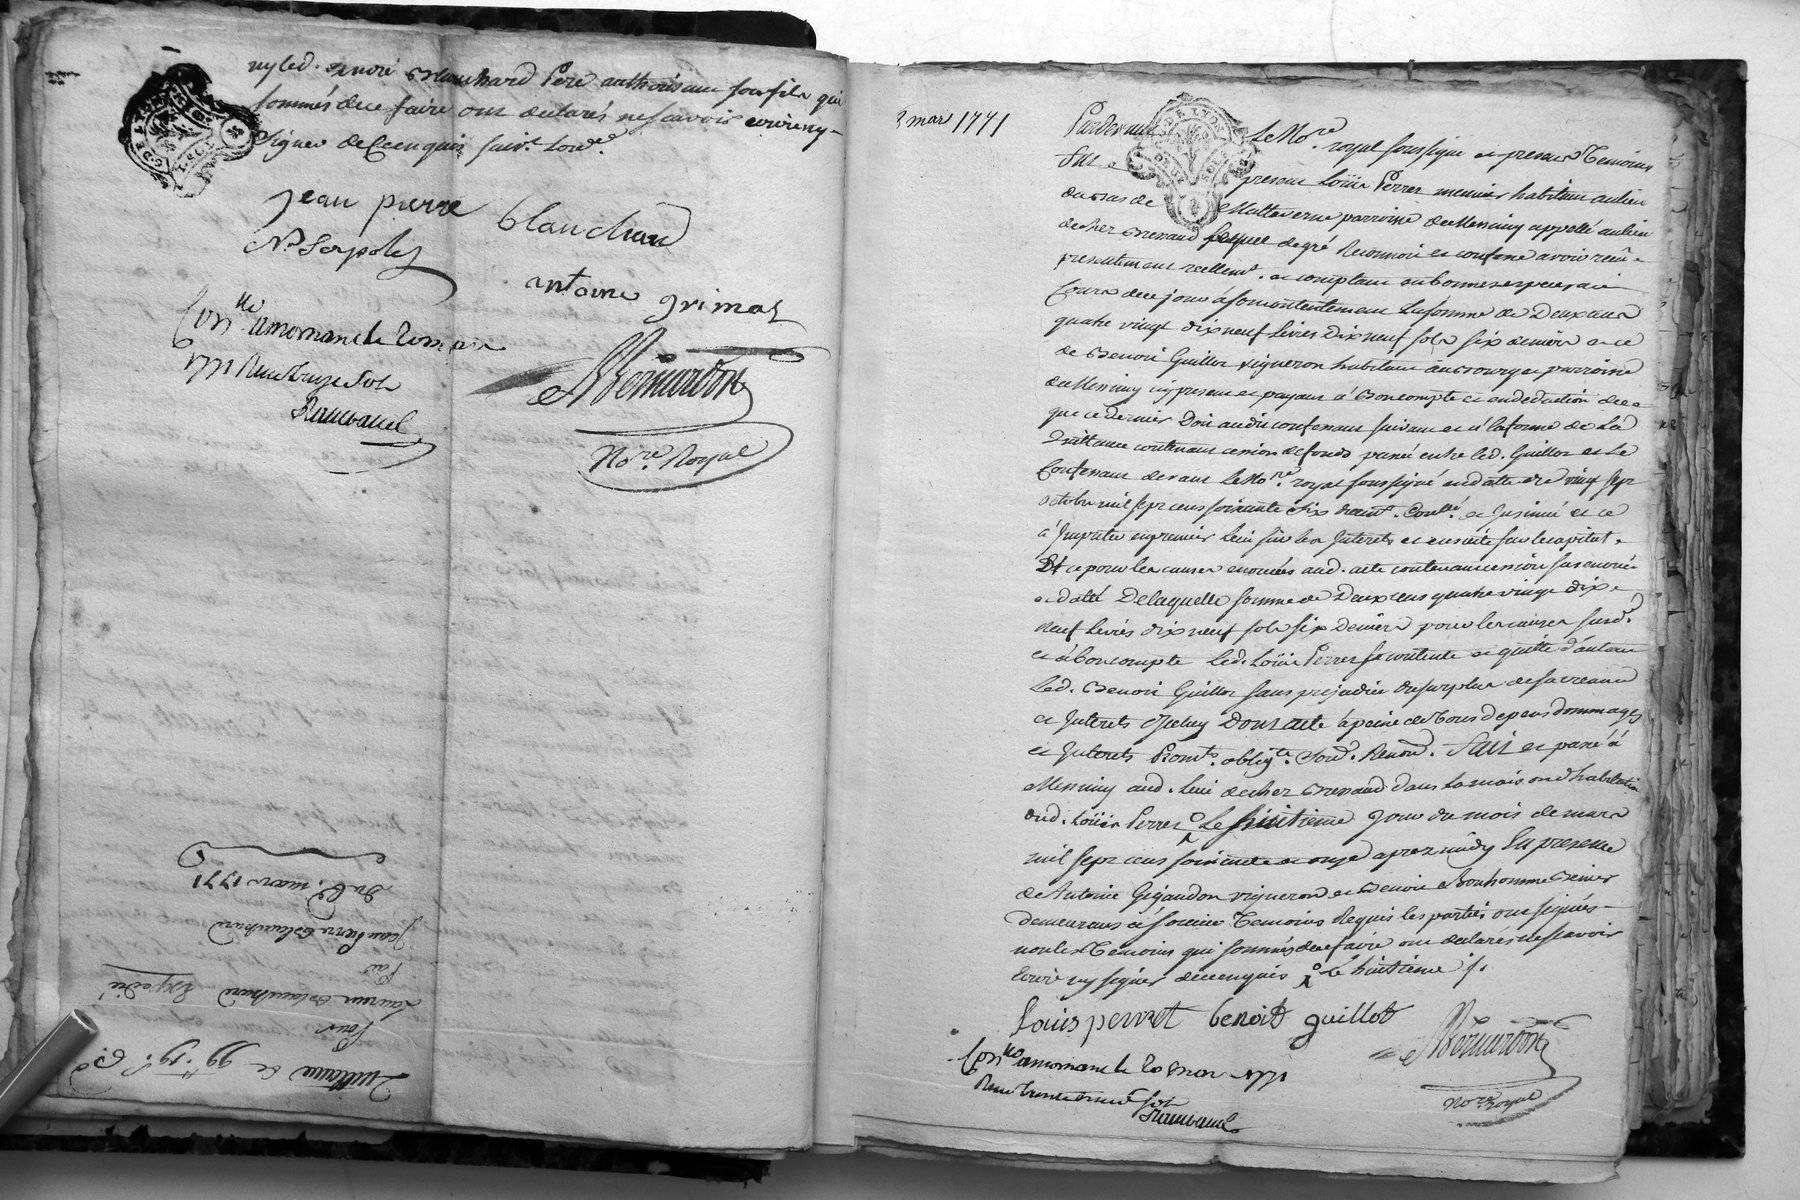 ny led. Benoit Blanchard Pere authorisant son fils qui
sommés de ce faire ont declarés ne scavoir ecrire ny
signer de ce enquis suivt. lord.ce
jean pierre blanchard
Ns. Serpoly
antoine grimot
Con.llé a mornant le
1771 Reçu treize sols
Rambaud
Bernardon
No.re Royal
Quittance de 99.ll 19.s 6.d
Pour
Laurent Blanchard Expedié
Par
Jean Pierre Blanchard
Du 6. mars 1771
8 mars 1771
Pardevant Le No.re royal soussigné et presents Temoins
Fut present Loüis Perret meunier habitant au lieu
du bas de Malleverne parroisse de Messimy appellé au lieu
de chez Bressand lequel de gré Reconnoit et confesse avoir reçu
presentement reellemt. et comptant en bonnes especes aiant
Cours de ce jour à son contentement La somme de Deux cent
quatre vingt dix neuf Livres Dix neuf sols six deniers et ce
de Benoit Guillot vigneron habitant au bourg et parroisse
de Messimy icy present et payant à Bon compte et en deduction de ce
que ce dernier Doit audit confessant suivant et à la forme de La
Quittance contenant cession de fonds passé entre led. Guillot et Le
Confessant devant Le No.re royal soussigné en datte du vingt sept
octobre mil sept cent soixante dix duemt. Conllé. et Insinué et ce
à Imputer en premier Lieu sur les Interets et ensuite sur le capital
Et ce pour les causes enoncées aud. acte contenant cession sus enoncé
et datté De laquelle somme de Deux cent quatre vingt dix
neuf Livres dix neuf sols six Deniers pour les causes susd.
et à bon compte Led. Loüis Perret se contente et quitte d'autant
Led. Benoit Guillot sans prejudice du surplus de sa creance
et Interets Dont acte à peine de Tous depens dommages
et Interets Promt. oblig.te Soud. Renonc. Fait et passé à
Messimy aud. lieu de chez Bressand dans La maison d'habitation
dud. Loüis Perret Le huitieme jour du mois de mars
mil sept cent soixante et onze apres midy En presence
de Antoine Gigandon vigneron et Benoit Bonhomme
demeurants à Soucieu Temoins Requis les parties ont signées
non les Temoins qui sommés de ce faire ont declarés ne scavoir
Ecrire ny signer de ce enquis Le huitieme /.
Louis perret benoit guillot
Bernardon
No.re Royal
Con.llé a mornant le 20 mars 1771
Reçu sols
Rambaud